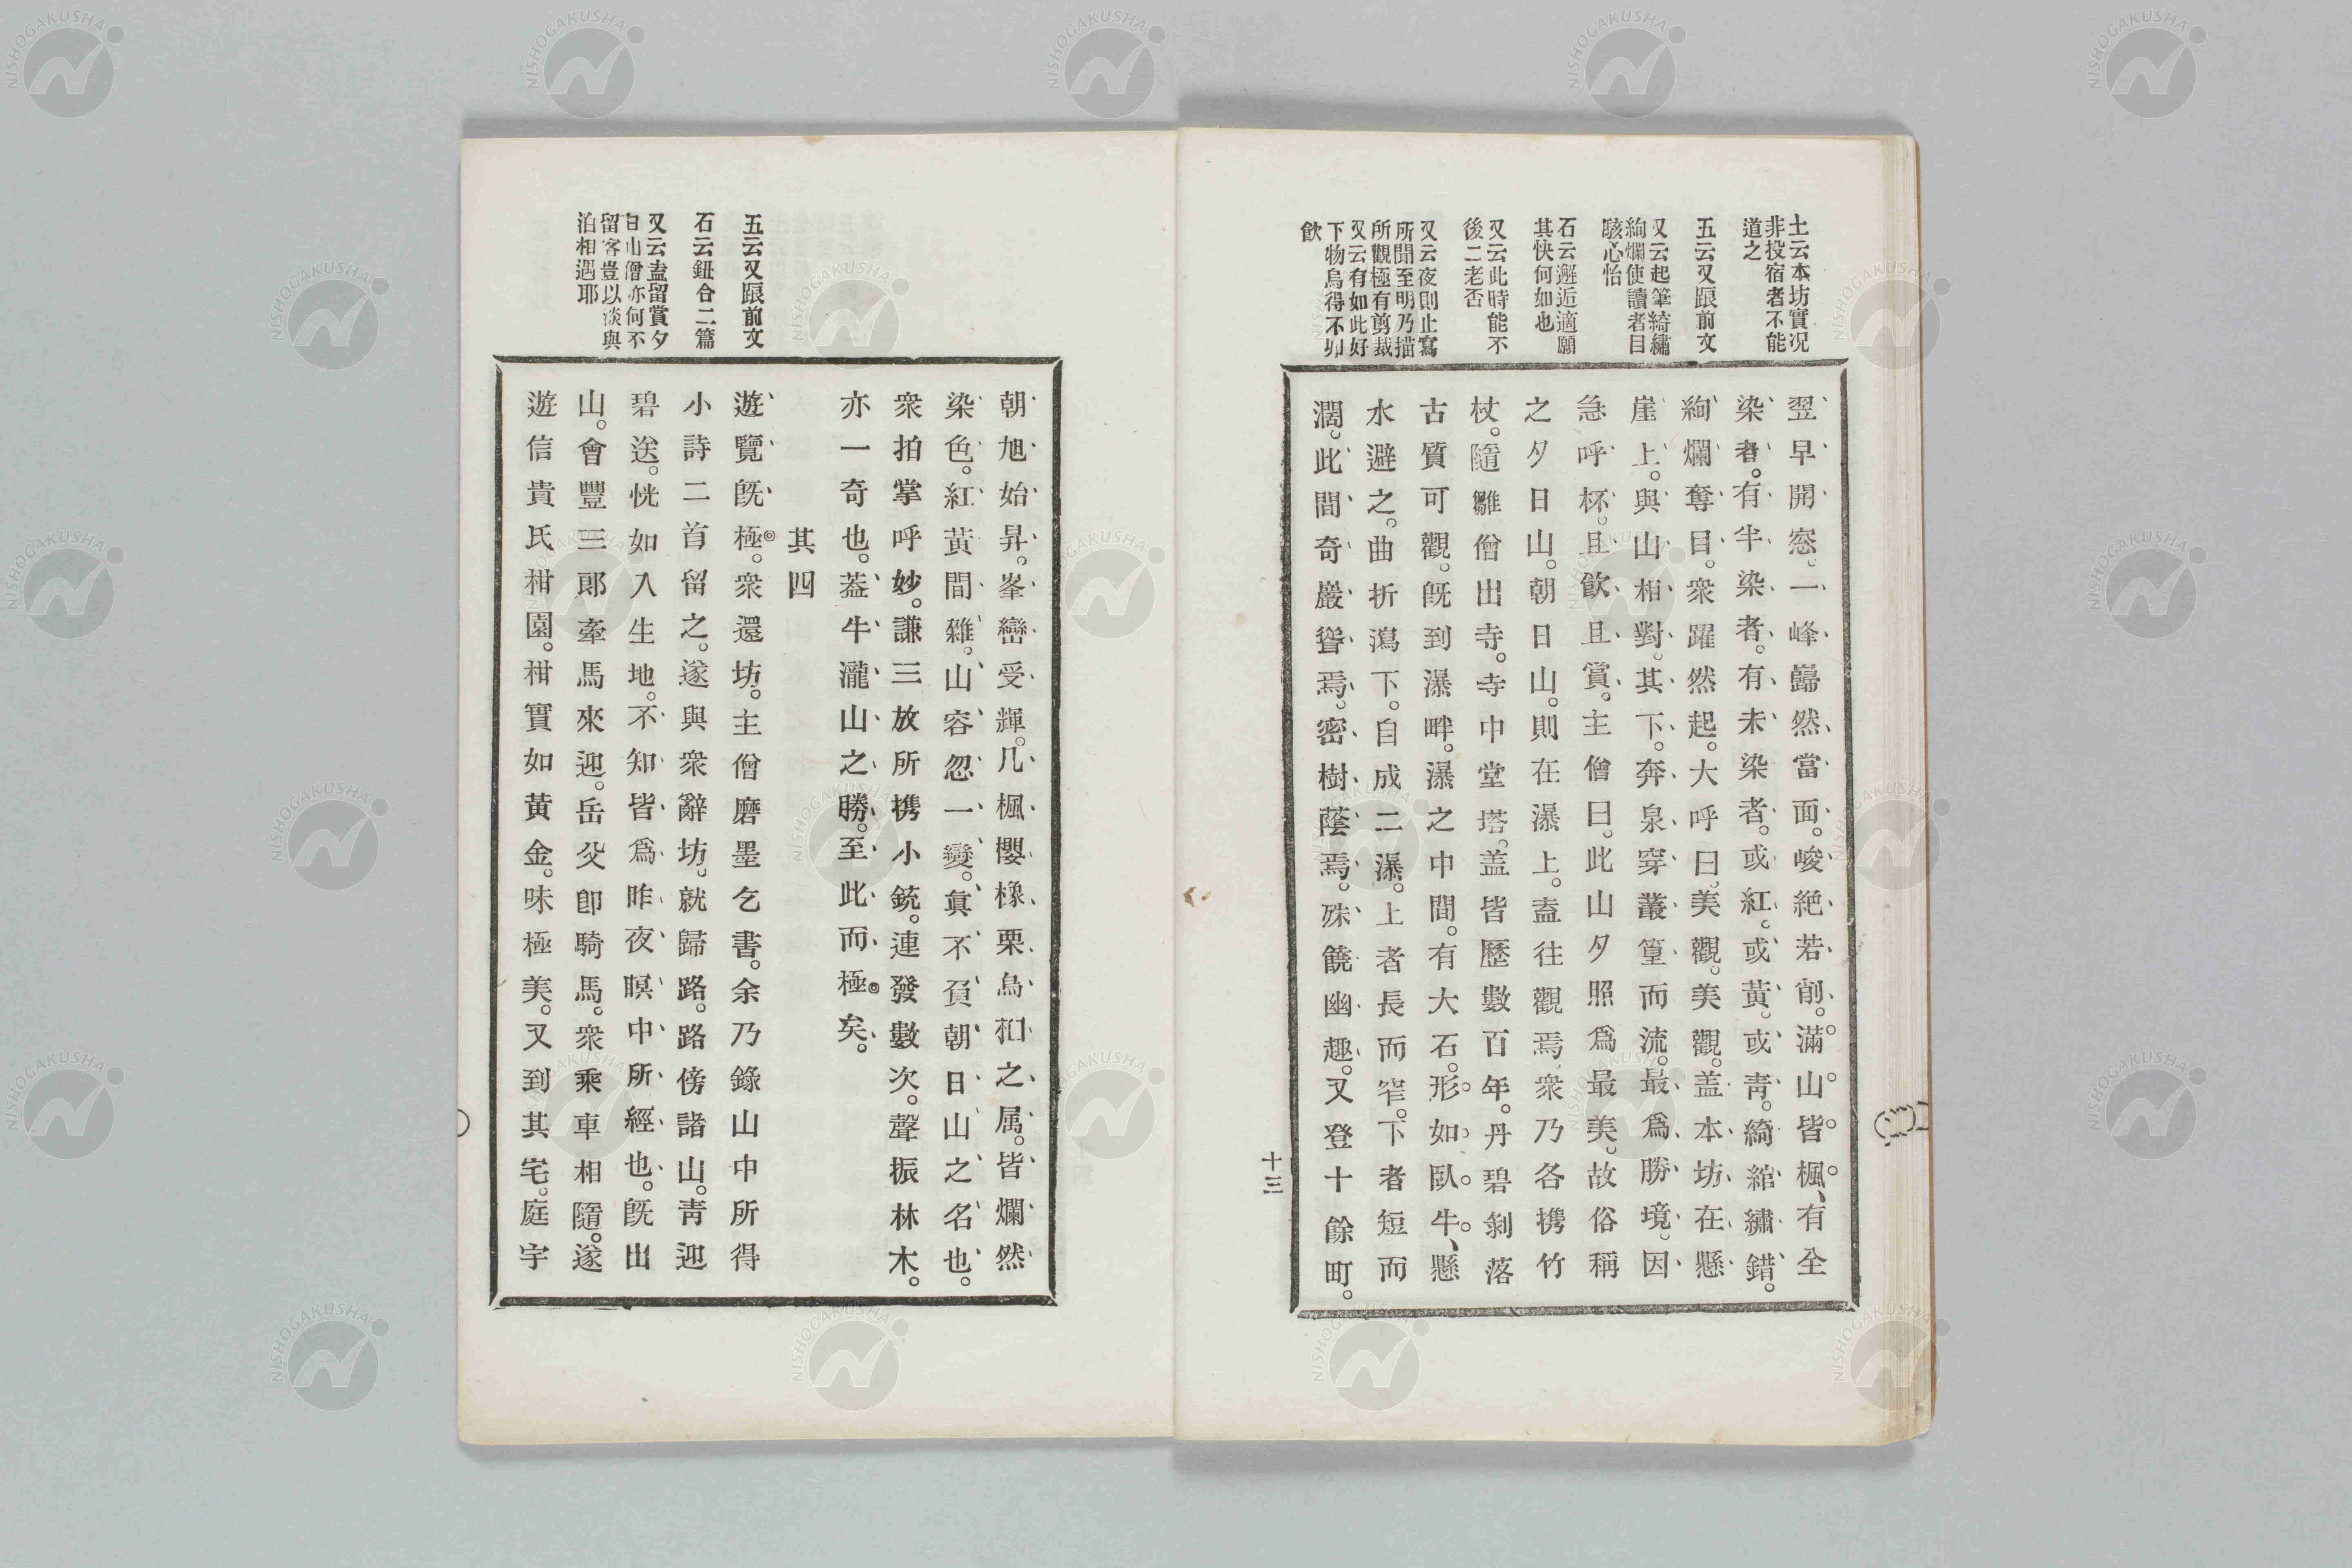 土云本坊實況
非投宿者不能
道之
五云又跟前文
又云起筆綺繡
絢爛使讀者目
駭心怡
石云邂逅適願
其快何如也
又云此時能不
後二老否
又云夜則止寫
所聞至明乃描
所觀極有剪裁
又云有如此好
下物烏得不卯
飲
翌早開窓。一峰巋然當面。峻絶若削。滿山皆楓、有全
染者。有半染者。有未染者。或紅。或黃。或靑。綺綰繡錯。
絢爛奪目。衆躍然起。大呼曰。美觀。美觀。盖本坊在懸
崖上。與山相對。其下。奔泉穿叢篁而流。最爲勝境。因
急呼杯。且飮且賞。主僧曰。此山夕照爲最美。故俗稱
之夕日山。朝日山。則在瀑上。盍往觀焉。衆乃各携竹
杖。隨雛僧出寺。寺中堂塔。盖皆歷數百年。丹碧剝落
古質可觀。旣到瀑畔。瀑之中間。有大石。形如臥牛、懸
水避之。曲折瀉下。自成二瀑。上者長而窄。下者短而
濶。此間奇巖聳焉。密樹蔭焉。殊饒幽趣。又登十餘町。
十三
五云又跟前文
石云鈕合二篇
又云盍留賞夕
日山僧亦何不
留客豈以淡與
泊相遇耶
朝旭始昇。峯巒受輝。凡楓櫻橡栗烏桕之属。皆爛然
染色。紅黃間雜。山容忽一變。眞不負朝日山之名也。
衆拍掌呼妙。謙三放所携小銃。連發數次。聲振林木。
亦一奇也。葢牛瀧山之勝。至此而極矣。
其四
遊覽旣極。衆還坊。主僧磨墨乞書。余乃錄山中所得
小詩二首留之。遂與衆辭坊。就歸路。路傍諸山。靑迎
碧送。恍如入生地。不知皆爲昨夜瞑中所經也。旣出
山。會豐三郎牽馬來迎。岳父卽騎馬。衆乘車相隨。遂
遊信貴氏柑園。柑實如黃金。味極美。又到其宅。庭宇
NISHOGAKUSHA